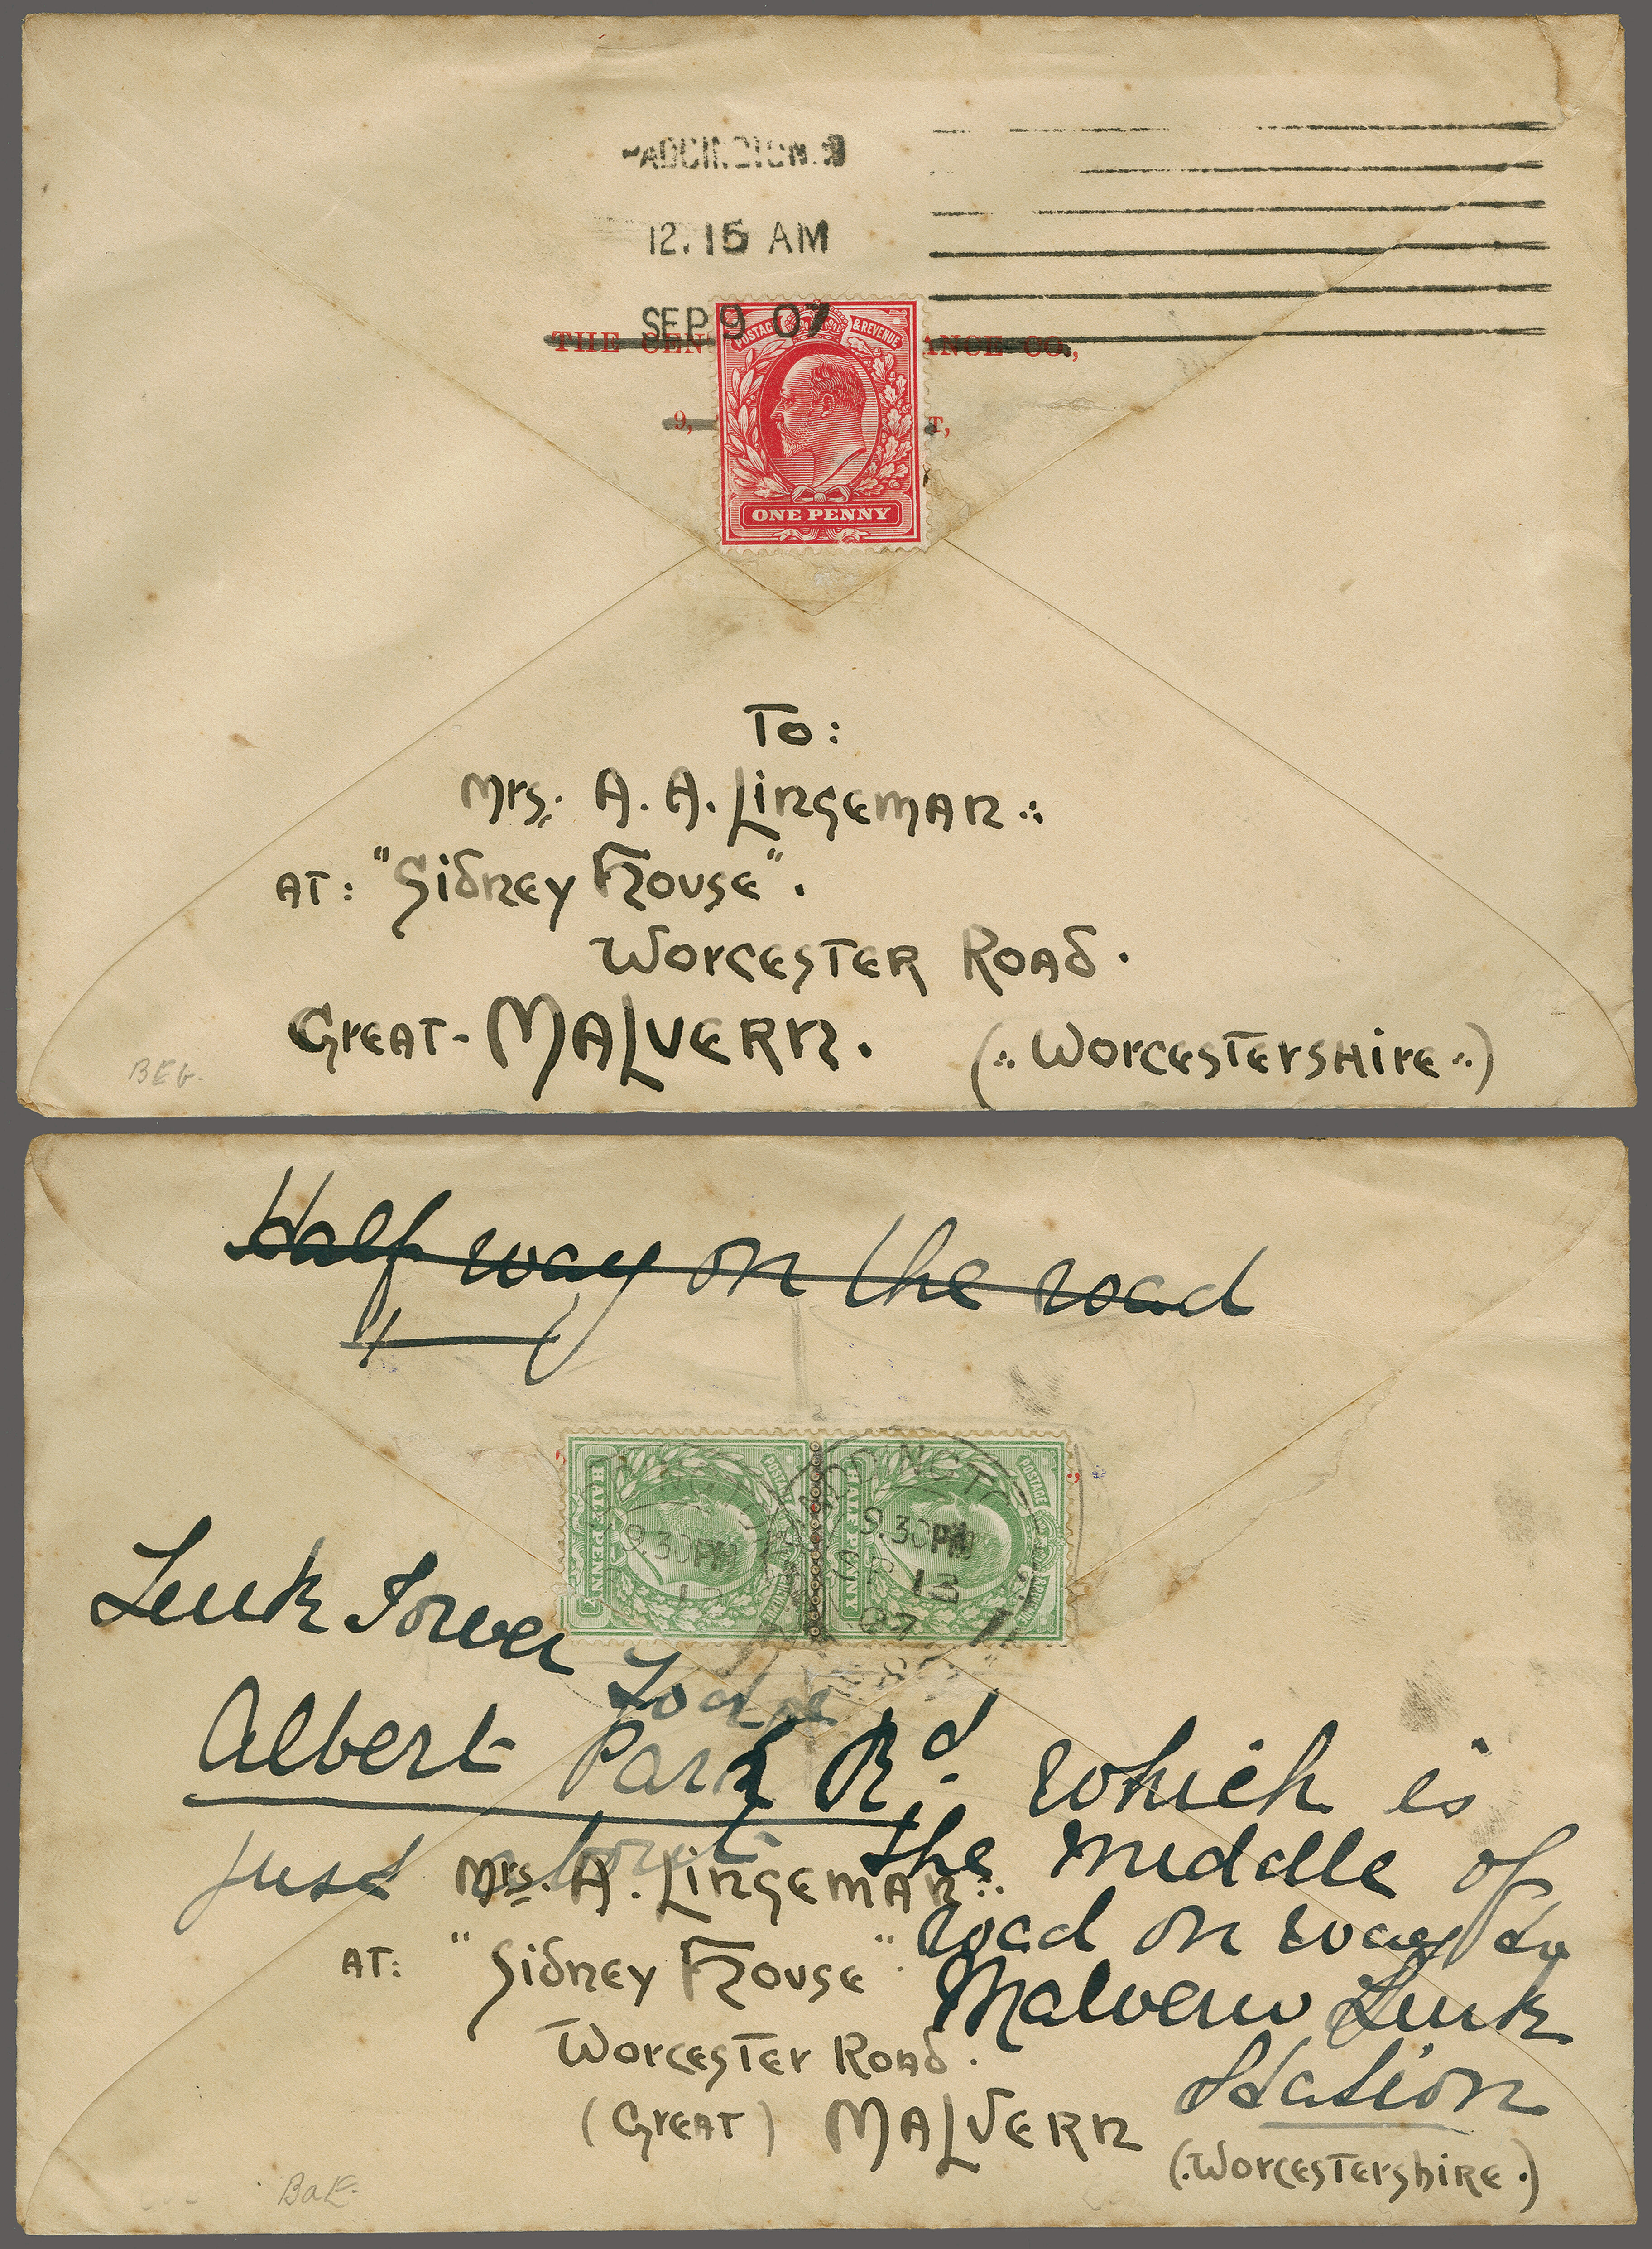 PADDINGTON. 9
12.15 AM
SEP 9 07
THE CEN ANCE CO.,
9, T,
POSTAGE & REVENUE
ONE PENNY
To:
Mrs. A. A. Lingeman
AT: "Sidney House".
Worcester Road.
Great-Malvern. (Worcestershire)
BEG.
Half way on the road
POSTAGE & REVENUE
HALFPENNY
POSTAGE & REVENUE
HALFPENNY
9.30PM
9.30PM
AP 13
07
PADDINGTON
Link Tower
Lodge
Albert Park Rd. which is
just about the middle of
Mrs. A. Lingeman
road on way to
AT: "Sidney House".
Malvern Link
Worcester Road.
Station
(Great) Malvern
(Worcestershire.)